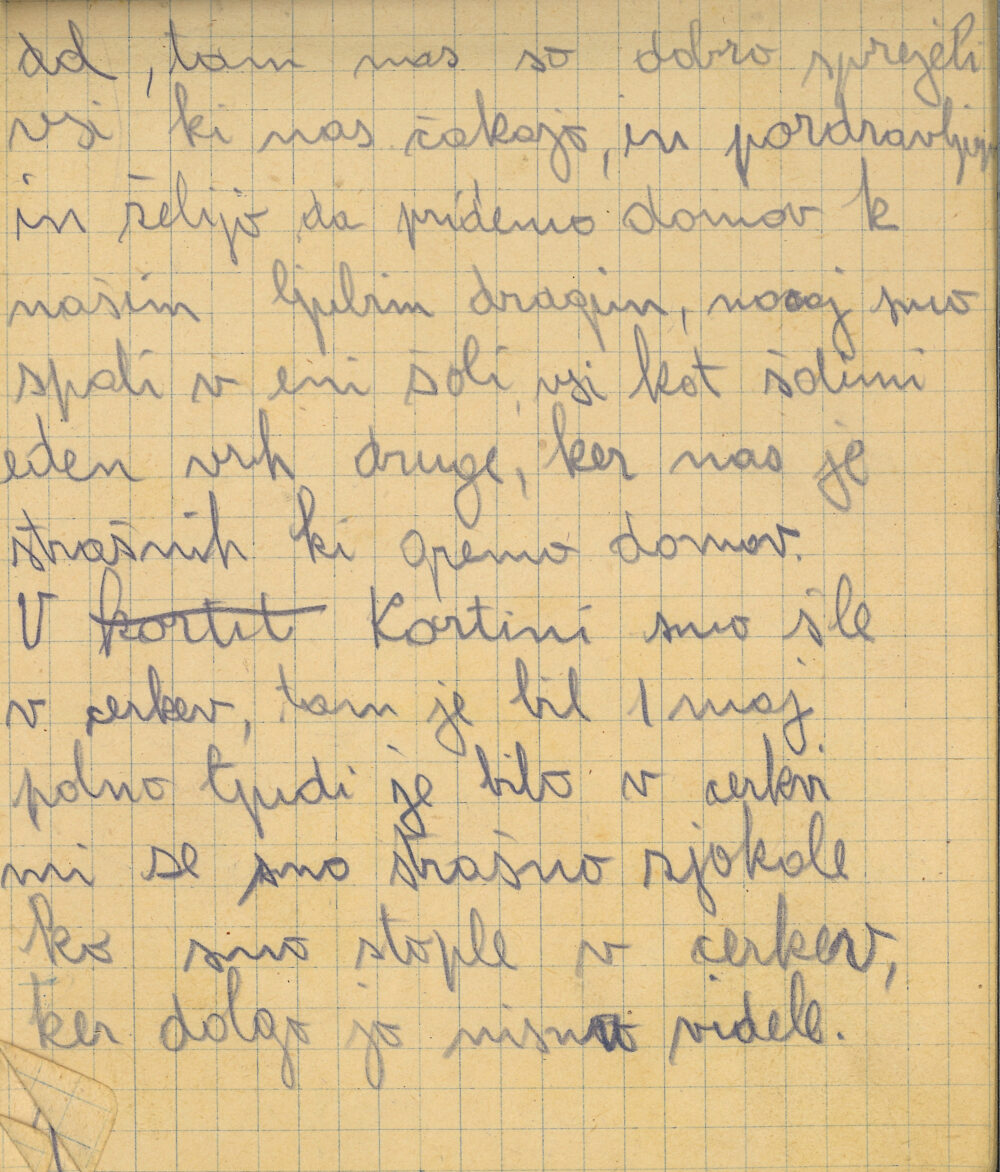 dd, tam nas so dobro sprejeli
vsi ki nas čakajo, in pozdravljajo
in želijo da pridemo domov k
našim ljubim dragim, nocoj smo
spali v eni šoli, vsi kot
eden vrh druge, ker nas je
strašnih ki gremo domov.
V kortit Kortini smo šle
v cerkev, tam je bil 1 maj
polno ljudi je bilo v cerkvi
mi se smo strašno zjokale
ko smo stople v cerkev,
ker dolgo jo nismo videle.